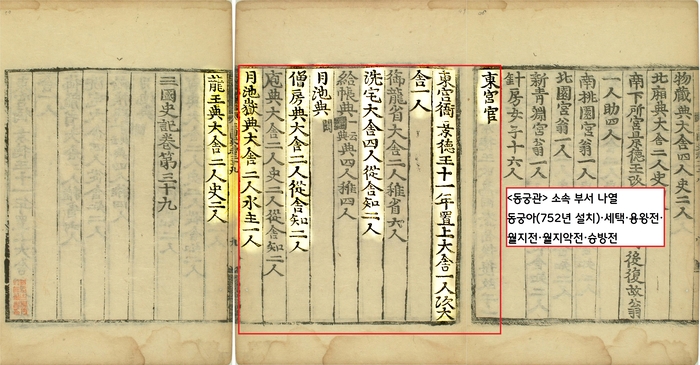 物藏典大舍四人史二人
北廂典大舍二人史四人
南下所宮景德王改
後復故翁
一人助四人
南桃園宮翁一人
北園宮翁一人
新靑淵宮翁一人
針房女子十六人
東宮官
東宮衙景德王十一年置上大舍一人次大
舍一人
御龍省大舍二人稚省六人
洗宅大舍四人從舍知二人
給帳典一云 典典四人稚四人
月池典
僧房典大舍二人從舍知二人
庖典大舍二人史二人從舍知二人
月池嶽典大舍二人水主一人
龍王典大舍二人史二人
三國史記卷第三十九
<동궁관> 소속 부서 나열
동궁아(752년 설치)·세택·용왕전·
월지전·월지악전·승방전